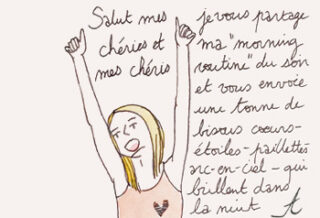 Salut mes
chéries et
mes chéris
je vous partage
ma "morning
routine" du soir
et vous envoie
une tonne de
bisous cœurs-
étoiles-paillettes
arc-en-ciel-qui
brillent dans
la nuit